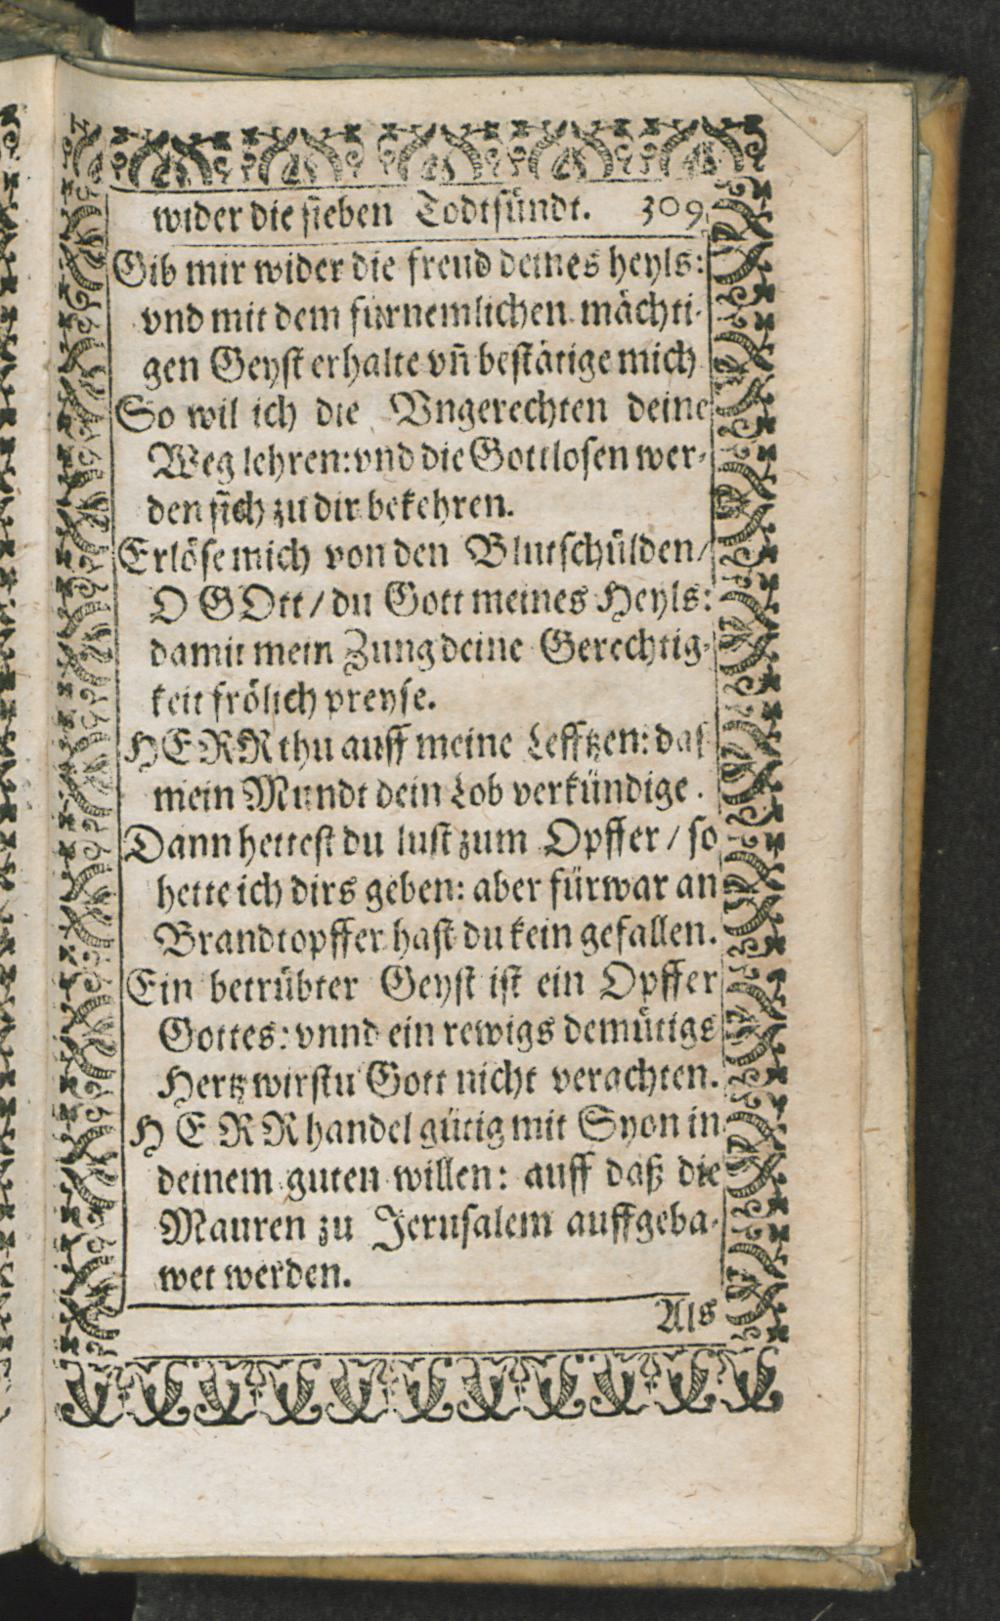 wider die sieben Todtsündt. 309
Gib mir wider die freud deines heyls:
vnd mit dem fürnemlichen mächti-
gen Geyst erhalte vñ bestätige mich
So wil ich die Vngerechten deine
Weg lehren: vnd die Gottlosen wer-
den sich zu dir bekehren.
Erlöse mich von den Blutschülden/
O GOtt/ du Gott meines Heyls:
damit mein Zung deine Gerechtig-
keit frölich preyse.
HERR thu auff meine Lefftzen: das
mein Mundt dein Lob verkündige.
Dann hettest du lust zum Opffer/ so
hette ich dirs geben: aber fürwar an
Brandtopffer hast du kein gefallen.
Ein betrübter Geyst ist ein Opffer
Gottes: vnnd ein rewigs demütigs
Hertz wirstu Gott nicht verachten.
HERR handel gütig mit Syon in
deinem guten willen: auff daß die
Mauren zu Jerusalem auffgeba-
wet werden.
Als